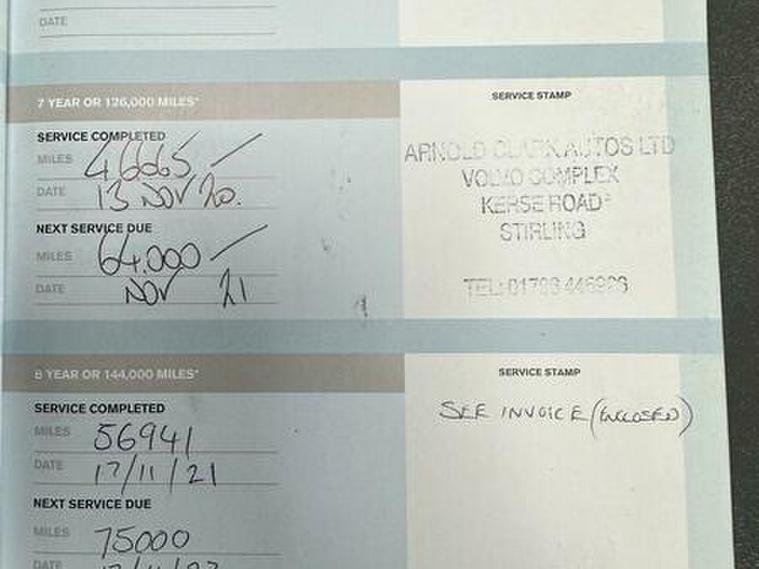 DATE
7 YEAR OR 126,000 MILES*
SERVICE STAMP
SERVICE COMPLETED
MILES 46665
DATE 13 NOV 20.
NEXT SERVICE DUE
MILES 64.000
DATE NOV 21
ARNOLD CLARK AUTOS LTD
VOLVO COMPLEX
KERSE ROAD
STIRLING
TEL: 01786
8 YEAR OR 144,000 MILES*
SERVICE STAMP
SERVICE COMPLETED
MILES 56941
DATE 17/11/21
NEXT SERVICE DUE
MILES 75000
DATE
SEE INVOICE (ENCLOSED)